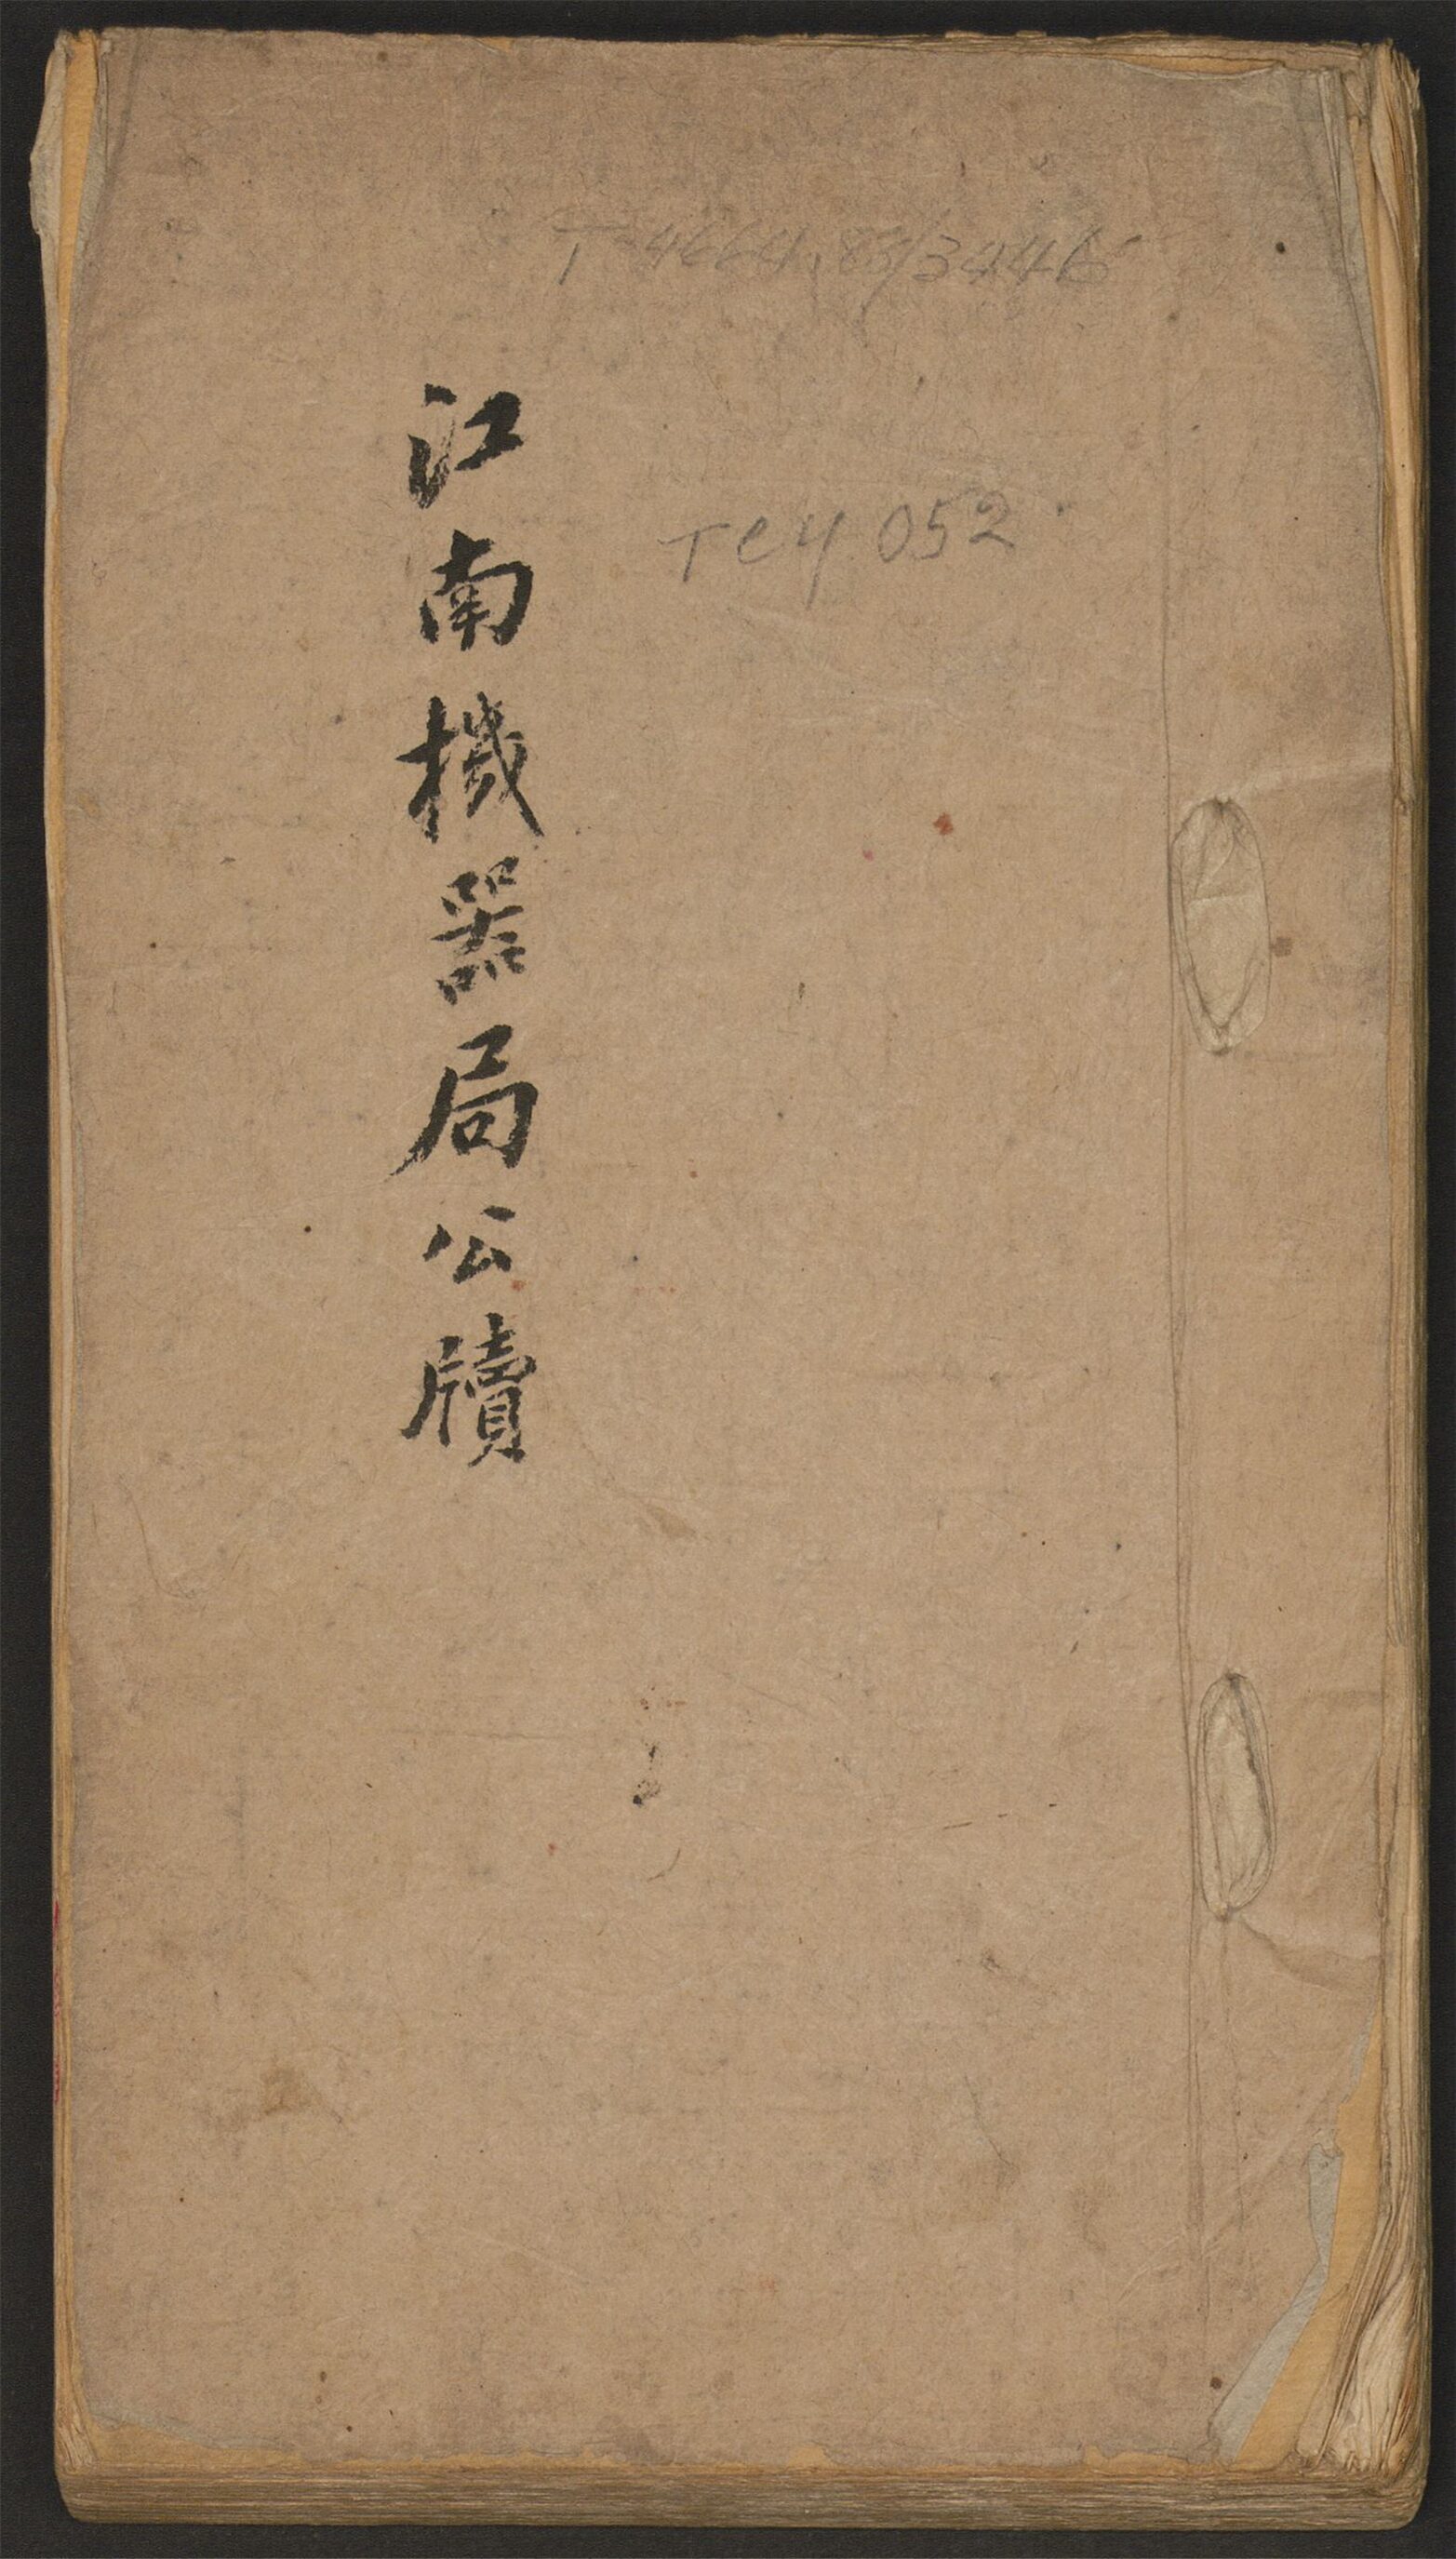 T 4664.83/3446
江南機器局公牘
TCY 052